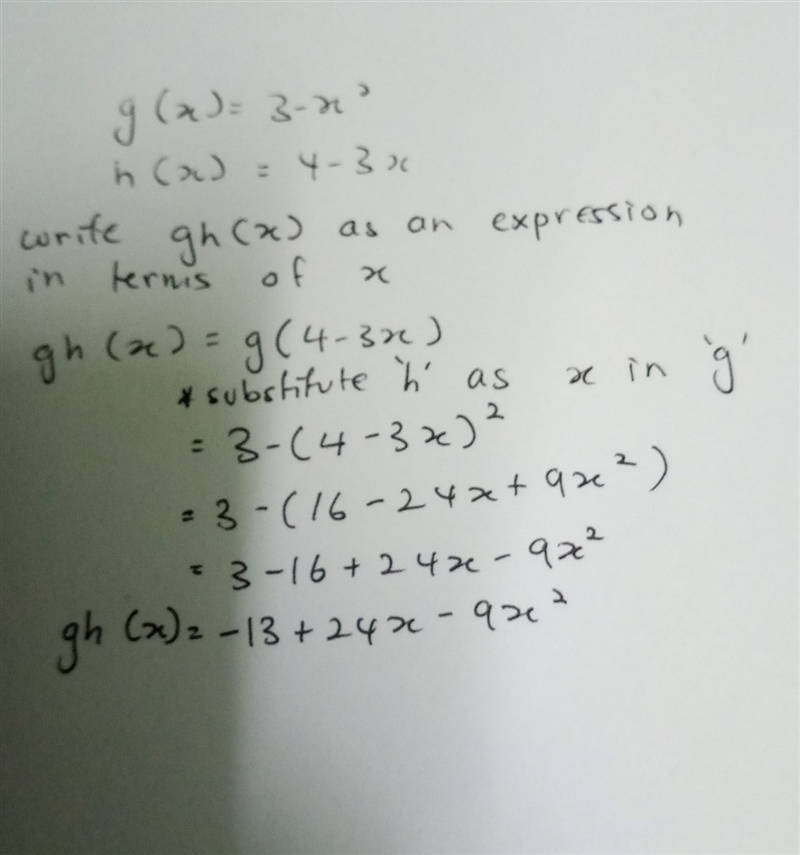 g(x) = 3-x²
h(x) = 4-3x
write gh(x) as an expression
in terms of x
gh(x) = g(4-3x)
* substitute 'h' as x in 'g'
= 3-(4-3x)²
= 3-(16-24x+9x²)
= 3-16+24x-9x²
gh(x) = -13+24x-9x²